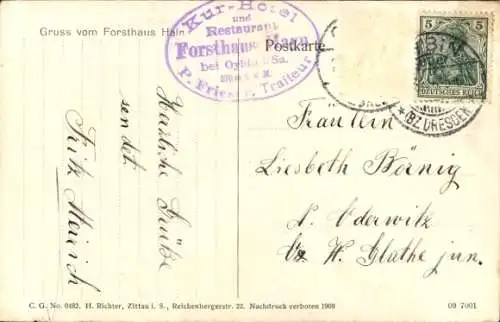 Gruss vom Forsthaus Hain
Kur-Hotel
und
Restaurant
Forsthaus Hain
bei Oybin i. Sa.
P. Friese, Traiteur
Postkarte
5 5
DEUTSCHES REICH
OYBIN
*(BZ. DRESDEN)
Herzliche Grüße
sendet
Fritz
Fräulein
Liesbeth Börnig
N. Oderwitz
bz. H. Glathe jun.
C. G. No. 0482. H. Richter, Zittau i. S., Reichenbergerstr. 22. Nachdruck verboten 1909
09 7001